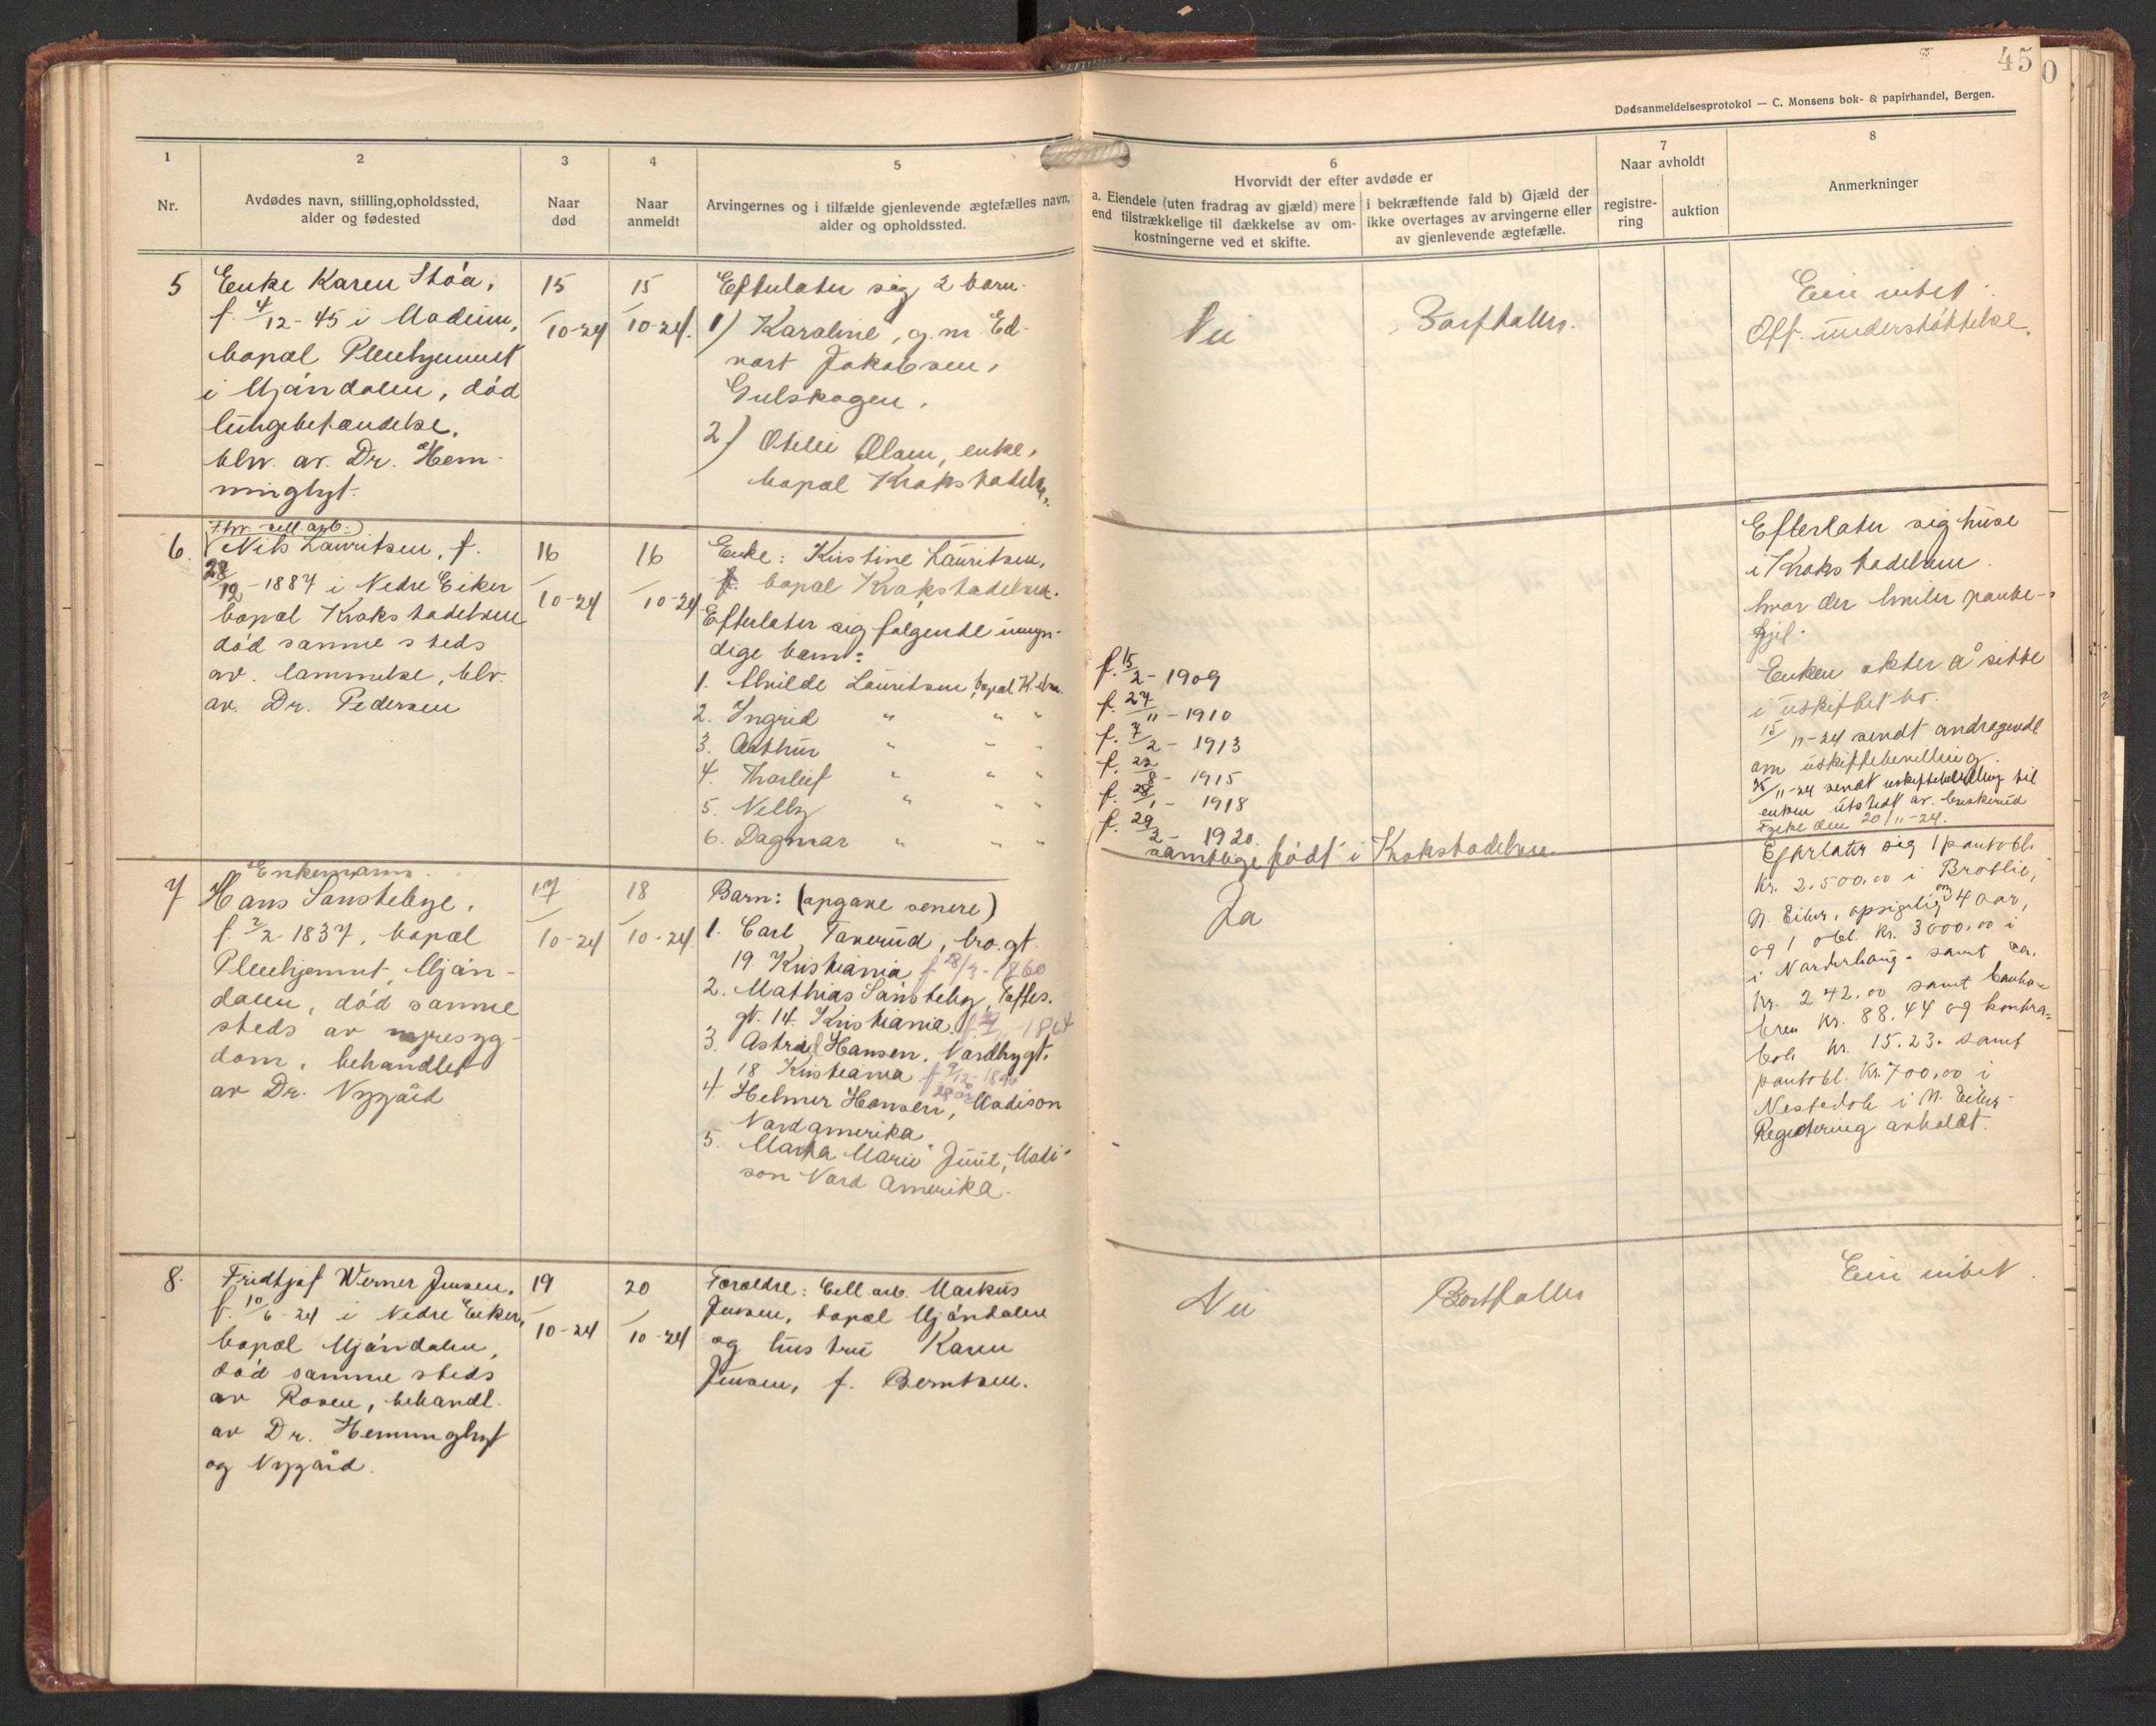 45
0
Dødsanmeldelsesprotokol — C. Monsens bok- & papirhandel, Bergen.
1
Nr.
2
Avdødes navn, stilling, opholdssted,
alder og fødested
3
Naar
død
4
Naar
anmeldt
5
Arvingernes og i tilfælde gjenlevende ægtefælles navn,
alder og opholdssted.
6
Hvorvidt der efter avdøde er
a. Eiendele (uten fradrag av gjæld) mere
end tilstrækkelige til dækkelse av om-
kostningerne ved et skifte.
i bekræftende fald b) Gjæld der
ikke overtages av arvingerne eller
av gjenlevende ægtefælle.
7
Naar avholdt
registre-
ring
auktion
8
Anmerkninger
5
Enke Karen Stöa,
f. 4/12-45 i Modum,
bopæl Pleiehjemmet
i Mjöndalen, död
lungebetændelse,
blv. av. Dr. Hem-
minghyt.
15/10-24
15/10-24.
Efterlater sig 2 barn.
1) Karoline, g. m. Ed-
vart Jakobsen,
Gulskogen.
2) Otilie Olsen, enke,
bopæl Krokstadelven.
Nei
Bortfaller.
Eier intet.
Off. understöttelse.
6.
Fhv. cell. arb.
Nils Lauritsen, f.
28/12-1887 i Nedre Eiker
bopæl Krokstadelven
död samme steds
av. lammelse, blv.
av. Dr. Pedersen
16/10-24
16/10-24
Enke: Kirstine Lauritsen,
bopæl Krokstadelven.
Efterlater sig følgende umyn-
dige barn:
1. Alvilde Lauritsen, bopæl K.elva.
2. Ingrid " " "
3. Arthur " " "
4. Thorleif " " "
5. Nelly " " "
6. Dagmar " " "
f. 15/2-1909
f. 27/11-1910
f. 7/2-1913
f. 23/8-1915
f. 28/1-1918
f. 29/2-1920.
samtlige födt i Krokstadelven
Efterlater sig huse
i Krokstadelven
hvor der hviler pante-
gjel.
Enken akter å sitte
i uskiftet bo.
15/11-24 sendt andragende
om uskiftebevilling.
25/11-24 sendt uskiftebevilling til
enken utstedt av. Buskerud
Fylke den 20/11-24.
7
Enkemann.
Hans Sønstebye,
f. 2/2-1837, bopæl
Pleiehjemmet, Mjön-
dalen, död samme
steds av nyresyg-
dom, behandlet
av Dr. Nygård
17/10-24
18/10-24
Barn: (opgave senere)
1. Carl Taxerud, bro.gt.
19. Kristiania f. 28/3-1860
2. Mathias Sönsteby, Toftes.
gt. 14. Kristiania
3. Astrid Hansen, Nordbygt.
18 Kristiania
4. Helmer Hansen, Madison
28 år
Nordamerika.
5. Marta Marie Juul, Madi-
son Nord Amerika.
Ja
Efterlater sig 1 pantobl.
Kr. 2.500,00 i Brotlie,
N. Eiker, opsigelig om 4 aar,
og 1 obl. Kr. 3000,00 i
i Norderhaug. samt
Kr. 242.00 samt bankbo-
ken Kr. 88.44 og kontra-
bok Kr. 15.23. samt
pantobl. Kr. 700,00 i
i N. Eiker
Registrering avholdt.
8.
Fridtjof Werner Jensen,
f. 10/6-24 i Nedre Eiker,
bopæl Mjöndalen,
död samme steds
av Rosen, behandl.
av Dr. Hemminghyt
og Nygård.
19/10-24
20/10-24
Foreldre: Cell. arb. Markus
Jensen, bopæl Mjöndalen
og hustru Karen
Jensen, f. Berntsen.
Nei
Bortfaller
Eier intet.